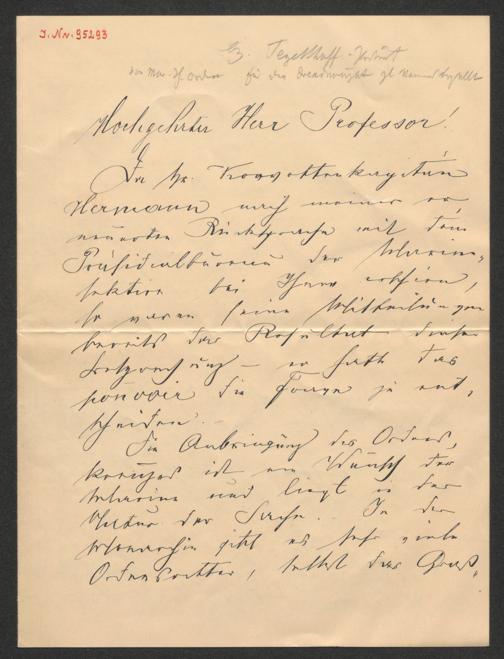 I.Nr. 95293
Tegetthoff-Porträt
für den Dreadnought gl. Namens bestellt
Hochgeehrter Herr Professor!
Da Hr. Korvettenkapitän
Hermann nach meiner er-
neuerten Rücksprache mit dem
Präsidialbureau der Marine-
sektion bei Ihnen erschien,
so waren seine Mittheilungen
bereits das Resultat dieser
Besprechung – er hatte das
pouvoir die Frage zu ent-
scheiden.
Die Anbringung des Ordens-
kreuzes ist ein Wunsch der
Marine und liegt in der
Natur der Sache. In der
Monarchie gibt es sehr viele
Ordensritter, selbst das Groß-